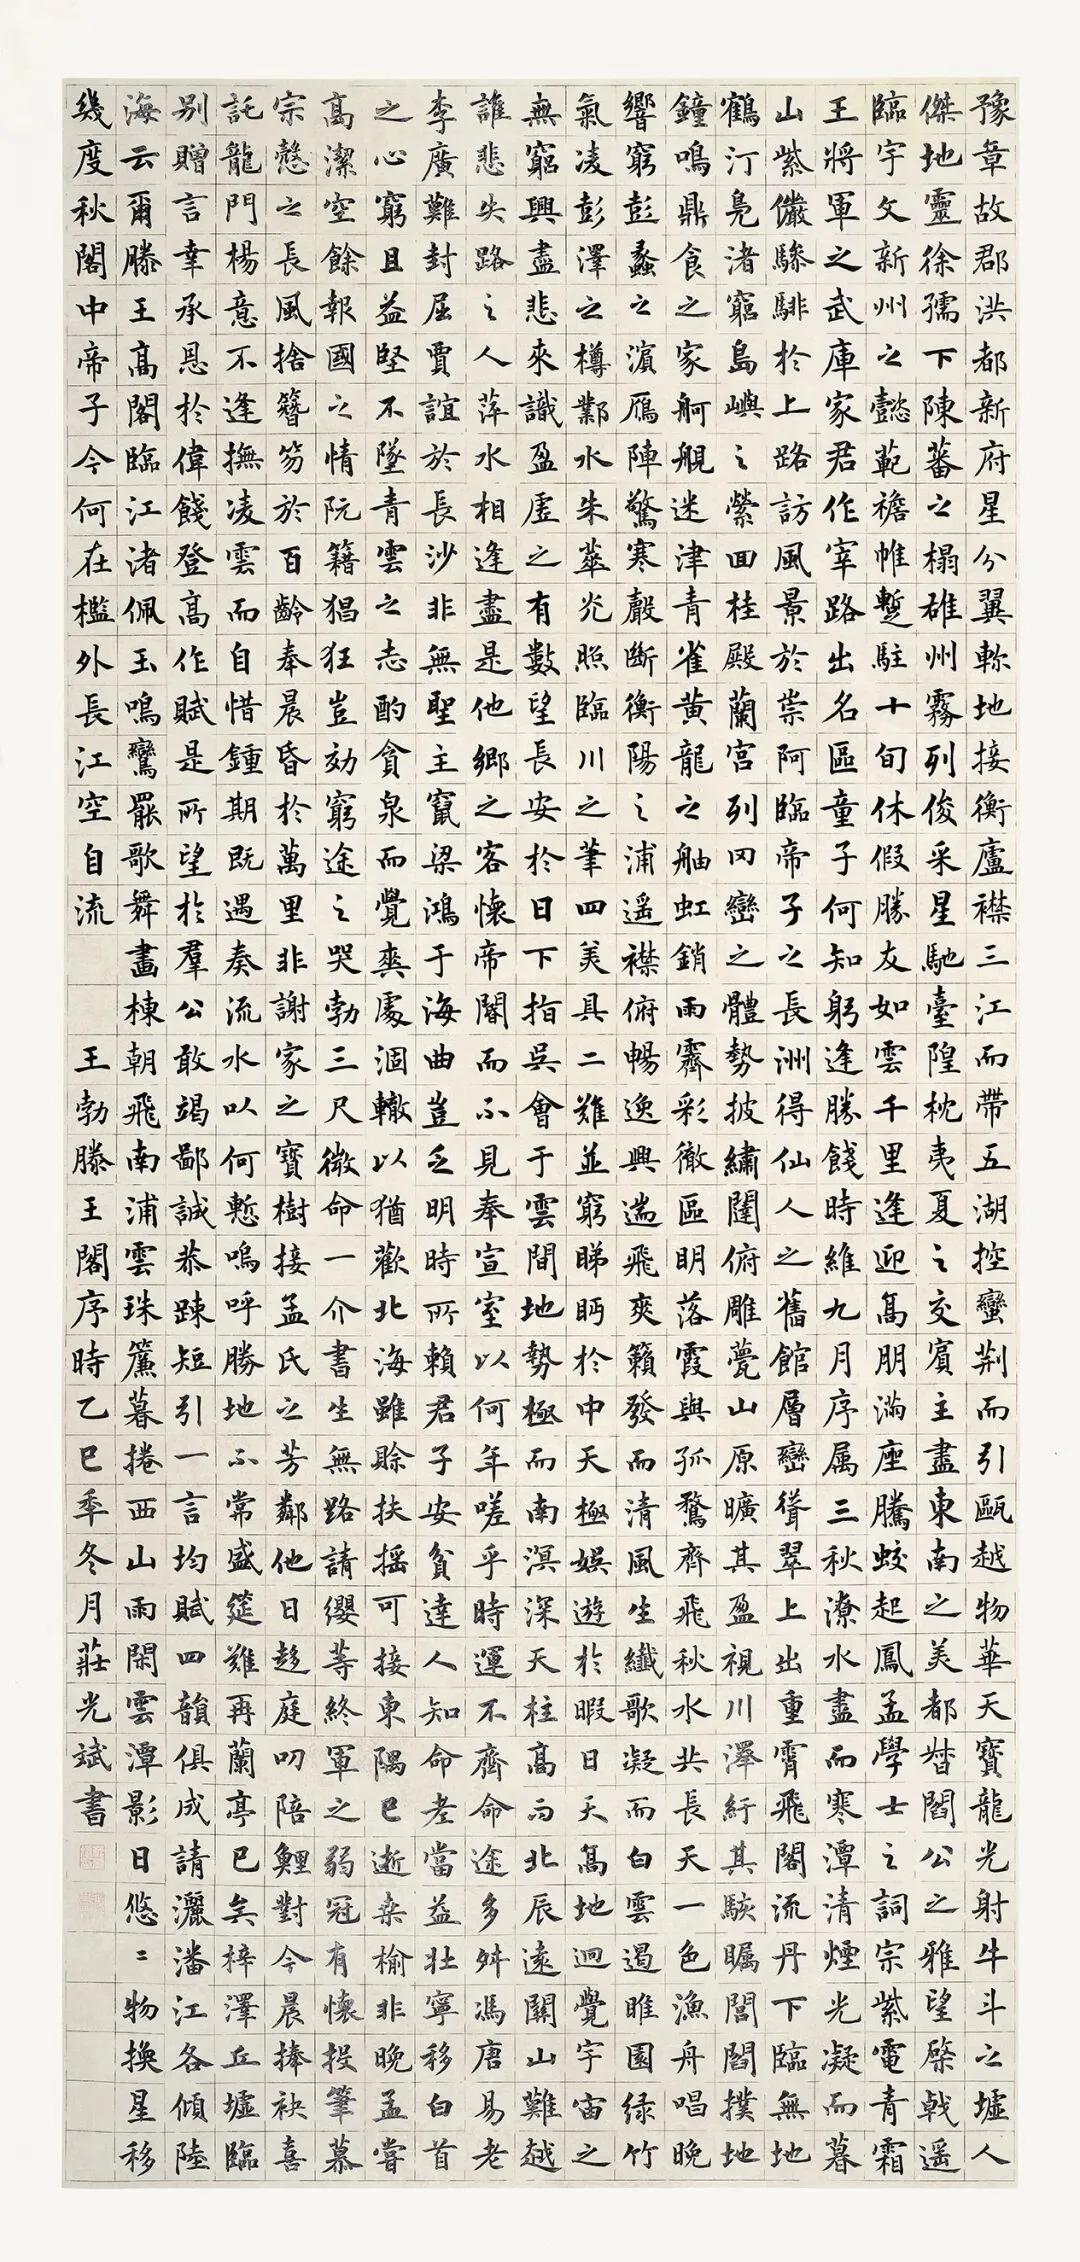 豫章故郡洪都新府星分翼軫地接衡廬襟三江而帶五湖控蠻荊而引甌越物華天寶龍光射牛斗之墟人
傑地靈徐孺下陳蕃之榻雄州霧列俊采星馳臺隍枕夷夏之交賓主盡東南之美都督閻公之雅望棨戟遙
臨宇文新州之懿範襜帷蹔駐十旬休假勝友如雲千里逢迎高朋滿座騰蛟起鳳孟學士之詞宗紫電青霜
王將軍之武庫家君作宰路出名區童子何知躬逢勝餞時維九月序属三秋潦水盡而寒潭清煙光凝而暮
山紫儼驂騑於上路訪風景於崇阿臨帝子之長洲得仙人之舊館層巒聳翠上出重霄飛閣流丹下臨無地
鶴汀鳧渚窮島嶼之縈回桂殿蘭宮列岡巒之體勢披繡闥俯雕甍山原曠其盈視川澤紆其駭矚閭閻撲地
鐘鳴鼎食之家舸艦迷津青雀黃龍之舳虹銷雨霽彩徹區明落霞與孤鶩齊飛秋水共長天一色漁舟唱晚
響窮彭蠡之濱雁陣驚寒聲斷衡陽之浦遙襟俯暢逸興遄飛爽籟發而清風生纖歌凝而白雲遏睢園綠竹
氣凌彭澤之樽鄴水朱華光照臨川之筆四美具二難並窮睇眄於中天極娛遊於暇日天高地迥覺宇宙之
無窮興盡悲來識盈虛之有數望長安於日下指吳會于雲間地勢極而南溟深天柱高而北辰遠關山難越
誰悲失路之人萍水相逢盡是他鄉之客懷帝閽而不見奉宣室以何年嗟乎時運不齊命途多舛馮唐易老
李廣難封屈賈誼於長沙非無聖主竄梁鴻于海曲豈乏明時所賴君子安貧達人知命老當益壯寧移白首
之心窮且益堅不墜青雲之志酌貪泉而覺爽處涸轍以猶歡北海雖賒扶搖可接東隅已逝桑榆非晚孟嘗
高潔空餘報國之情阮籍猖狂豈効窮途之哭勃三尺微命一介書生無路請纓等終軍之弱冠有懷投筆慕
宗慤之長風捨簪笏於百齡奉晨昏於萬里非謝家之寶樹接孟氏之芳鄰他日趍庭叨陪鯉對今晨捧袂喜
託龍門楊意不逢撫凌雲而自惜鍾期既遇奏流水以何慙嗚呼勝地不常盛筵難再蘭亭已矣梓澤丘墟臨
别贈言幸承恩於偉餞登高作賦是所望於羣公敢竭鄙誠恭踈短引一言均賦四韻俱成請灑潘江各傾陸
海云爾滕王高閣臨江渚佩玉鳴鸞罷歌舞畫棟朝飛南浦雲珠簾暮捲西山雨閑雲潭影日悠〻物換星移
幾度秋閣中帝子今何在檻外長江空自流 王勃滕王閣序時乙巳年冬月莊光斌書